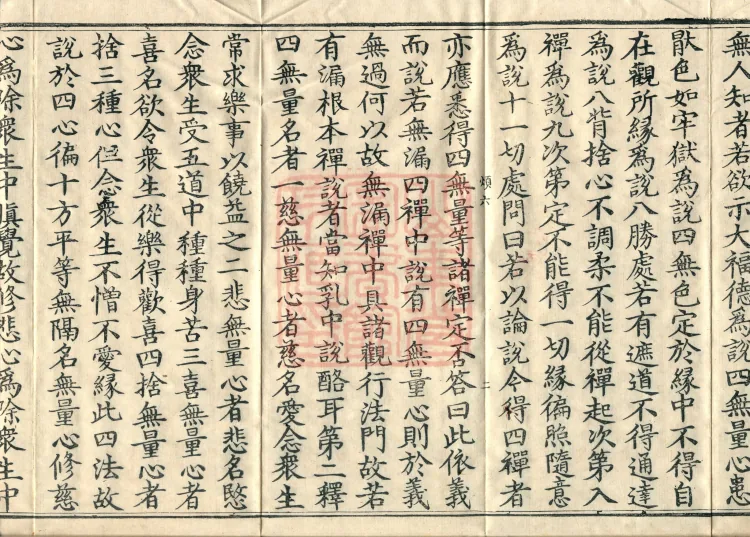 無人知者若欲示大福德為說四無量心患
猒色如牢獄為說四無色定於緣中不得自
在觀所緣為說八勝處若有遮道不得通達
為說八背捨心不調柔不能從禪起次第入
禪為說九次第定不能得一切緣徧照隨意
為說十一切處問曰若以論說令得四禪者
煩六
二
亦應悉得四無量等諸禪定不答曰此依義
而說若無漏四禪中說有四無量心則於義
無過何以故無漏禪中具諸觀行法門故若
有漏根本禪說者當知乳中說酪耳第二釋
四無量名者一慈無量心者慈名愛念衆生
常求樂事以饒益之二悲無量心者悲名愍
念衆生受五道中種種身苦三喜無量心者
喜名欲令衆生從樂得歡喜四捨無量心者
捨三種心但念衆生不憎不愛緣此四法故
說於四心徧十方平等無隔名無量心修慈
心為除衆生中瞋覺故修悲心為除衆生中